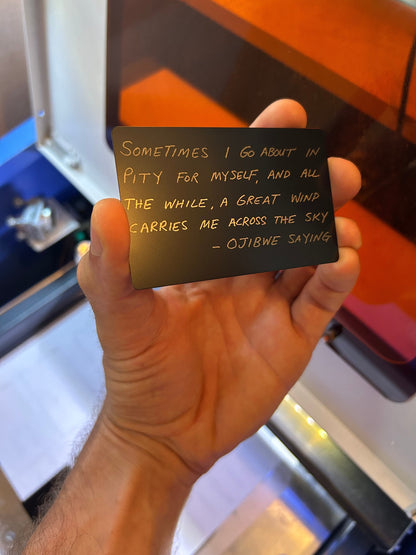 SOMETIMES I GO ABOUT IN
PITY FOR MYSELF, AND ALL
THE WHILE, A GREAT WIND
CARRIES ME ACROSS THE SKY
- OJIBWE SAYING